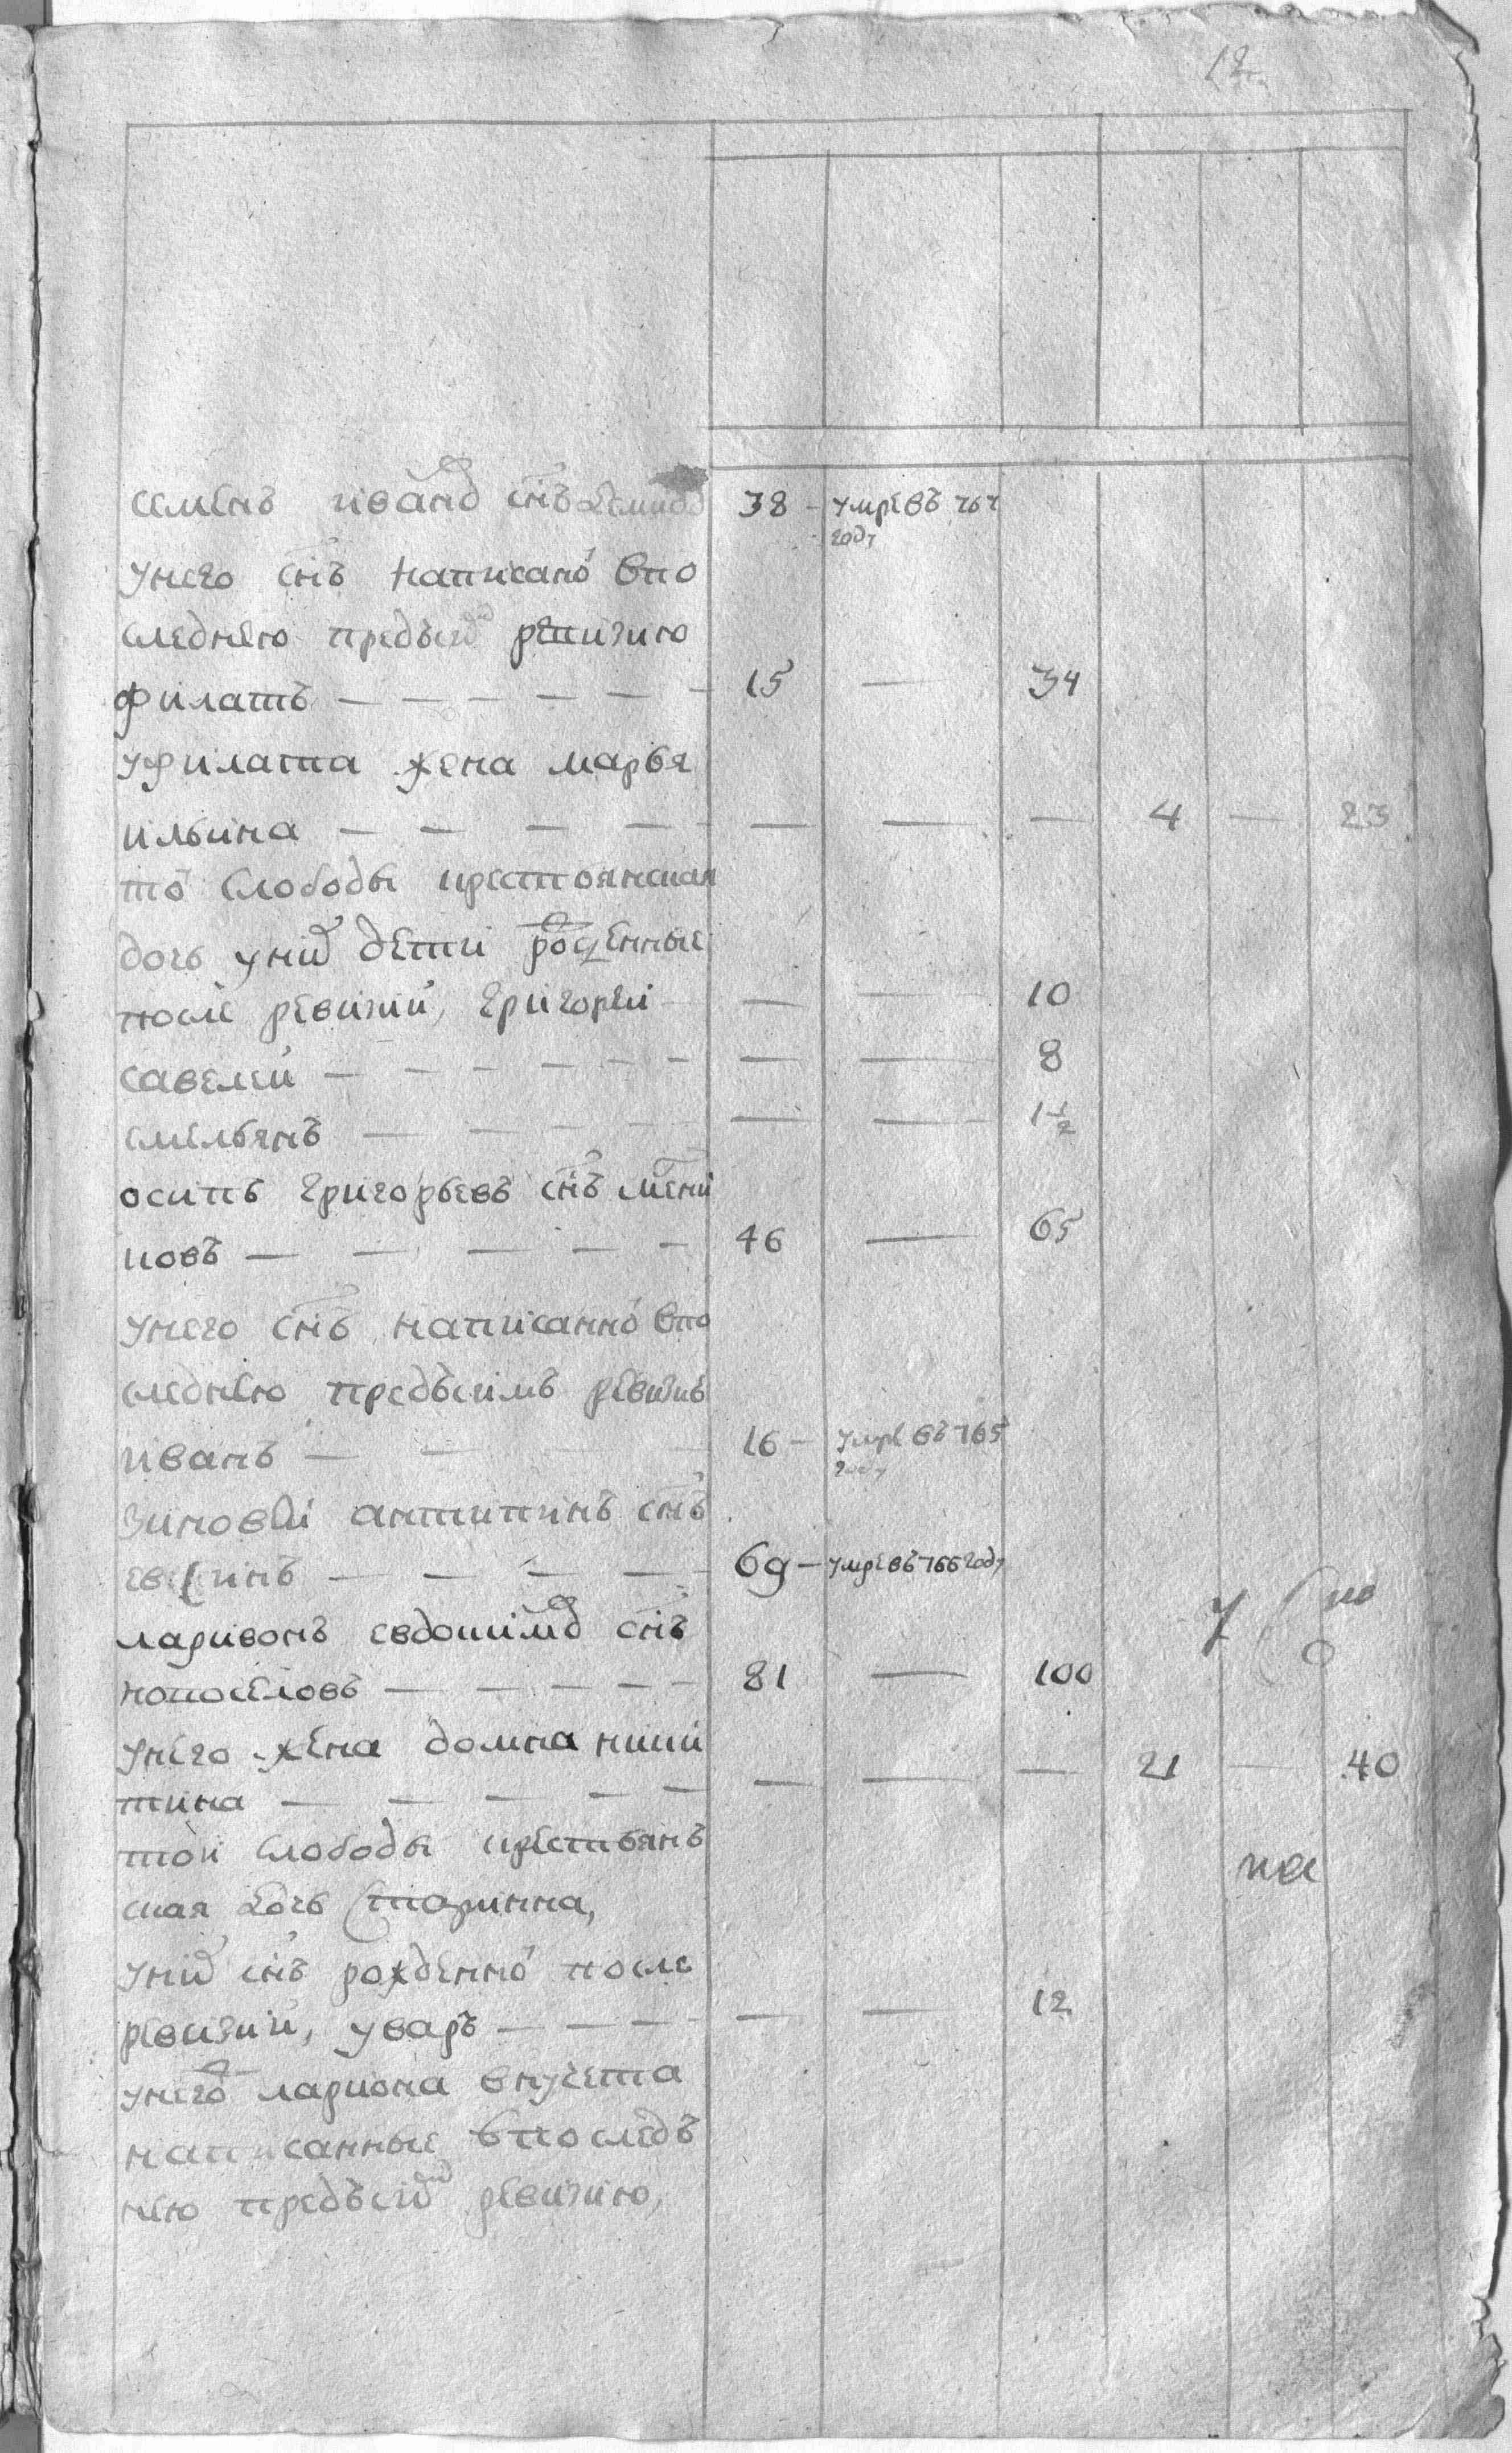 12
семенъ иванов снъ 38 - умре въ 767 году
унего снъ написано впо
следнею предъид ревизию
филатъ — — — — — — 15 — 34
уфилата жена марья
ильина — — — — — — — 4 — 23
то слободы крестьянская
дочь уних дети рожденные
после ревизии, григореи — — 10
савелеи — — — — — — — — 8
емельянъ — — — — — — 1½
осипъ григорьевъ снъ
новъ — — — — — 46 — 65
унего снъ написанно впо
следнею предъидимъ ревизиь
иванъ — — — — 16 - умре въ 765 году
зиновеи антипинъ снъ
69 — умре въ 766 году
ларивонъ евдокимов снъ
новоселовъ — — — — — 81 — 100
унего жена домна ники
тина — — — — — — — — 21 — 40
тои слободы крестьянъ
ская дочь
уних снъ рожденно после
ревизии, уваръ — — — — — — 12
унего лариона внучета
написанные впоследъ
нею предъид ревизию,